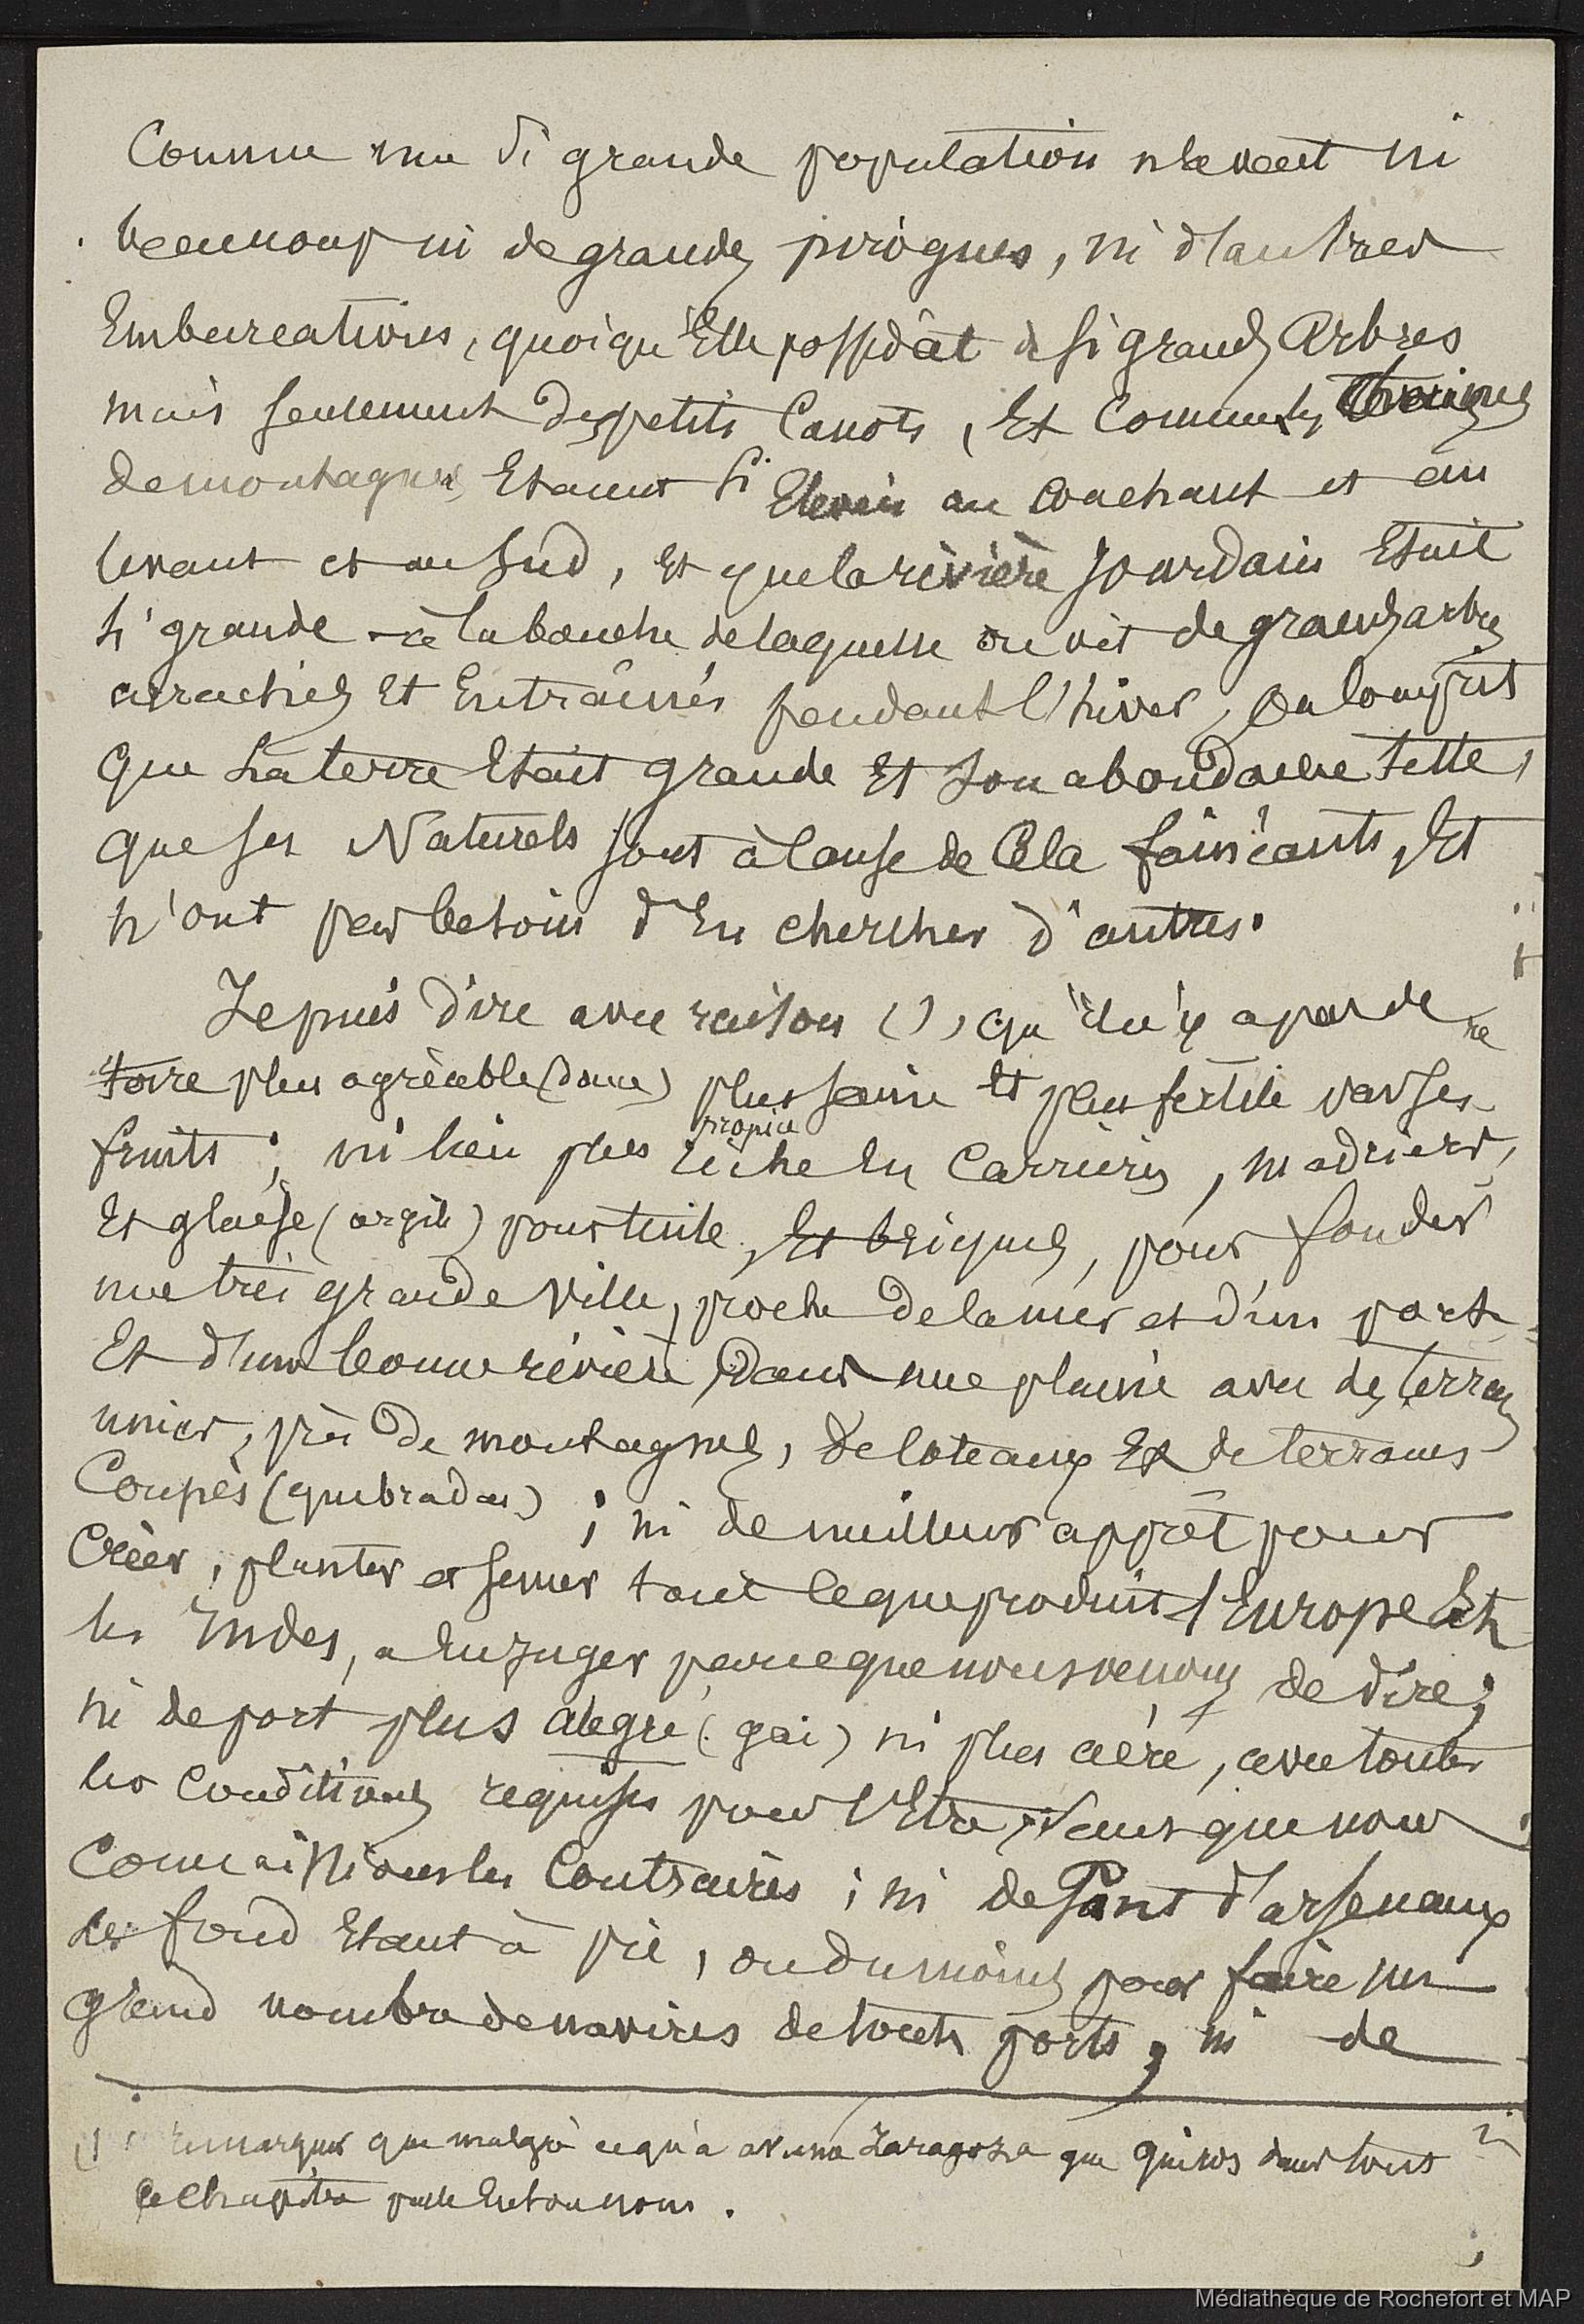 Comme une si grande population n'avait ni
beaucoup ni de grandes pirogues, ni d'autres
Embarcations, quoiqu'Elle possedât de si grands Arbres
mais seulement des petits Canots, Et Comme les
de montagnes Etaient si Elevés au couchant et au
levant et au Sud, Et que la rivière Jourdain Etait
si grande - à la bouche de laquelle on vit de grands arbres
arrachés Et Entraînés pendant l'hiver, On Comprit
que la terre Etait grande Et Son abondance telle,
que ses Naturels sont à Cause de Cela fainéants, Et
n'ont pas besoin d'En chercher d'autres.
Je puis dire avec raison (1), qu'il n'y a pas de
terre plus agréable (douce) plus saine Et plus fertile par ses
fruits ; ni lieu plus riche En Carrières, madriers,
propice
Et glaise (argile) pour tuile, Et briques, pour fonder
une très grande ville, proche de la mer et d'un port
Et d'une bonne rivière, Dans une plaine avec des terres
unies, près de montagnes, de Coteaux Et de terrains
Coupés (quebradas) ; ni de meilleur apprêt pour
Créer, planter et semer tout ce que produit l'Europe Et
les Indes, a En Juger par ce que nous venons de dire ;
ni de port plus alegre (gai) ni plus aéré, avec toutes
les Conditions requises pour l'Etre, Sans que nous
Connaissions les Contraires ; ni de d'arsenaux
le fond Etant à pic, ou du moins pour faire un
grand nombre de navires de toutes ports, ni de
(1) remarquer que malgré ce qu'a avancé Zaragoza que Quiros dans tout
ce Chapitre parle En son nom.